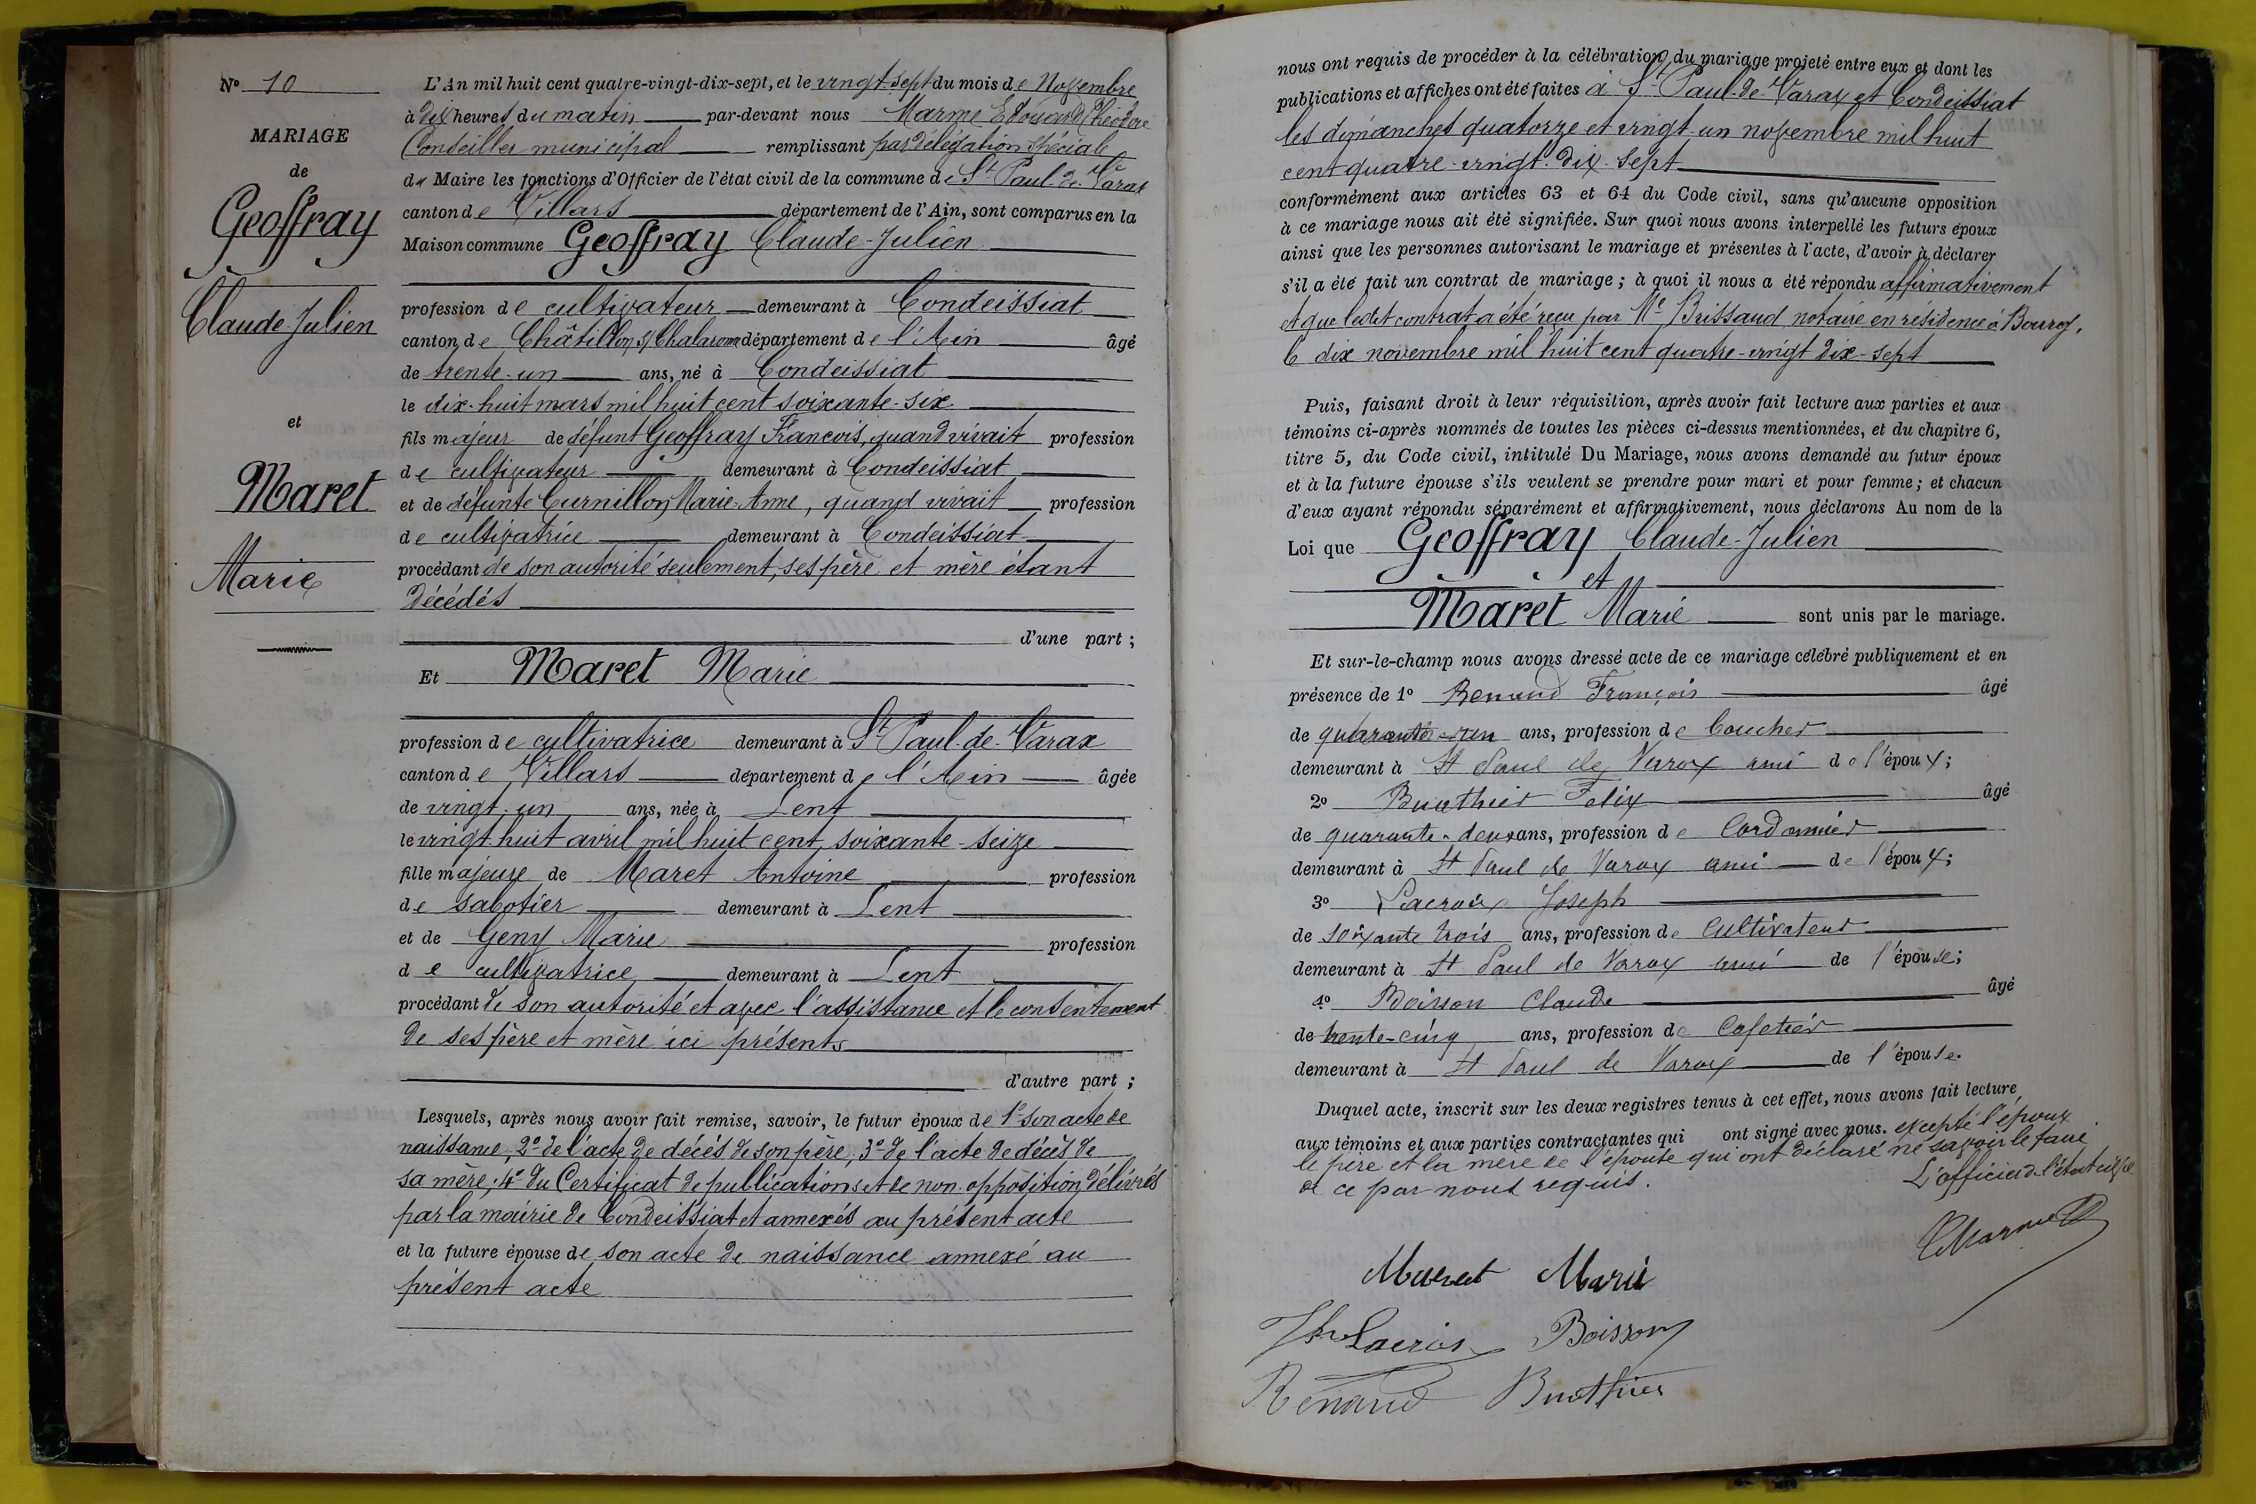 N° 10
MARIAGE
de
Geoffray
Claude-Julien
et
Maret
Marie
L'An mil huit cent quatre-vingt-dix-sept, et le vingt-sept du mois de Novembre
à dix heures du matin par-devant nous Marme Edouard Théodore
Conseiller municipal remplissant par délégation spéciale
du Maire les fonctions d'Officier de l'état civil de la commune de St Paul-de-Varax
canton de Villars département de l'Ain, sont comparus en la
Maison commune Geoffray Claude-Julien
profession de cultivateur demeurant à Condeissiat
canton de Châtillon s/ Chalaronne département de l'Ain âgé
de trente-un ans, né à Condeissiat
le dix-huit mars mil huit cent soixante-six
fils majeur de défunt Geoffray Francois, quand vivait profession
de cultivateur demeurant à Condeissiat
et de défunte Curnillon Marie-Anne, quand vivait profession
de cultivatrice demeurant à Condeissiat
procédant de son autorité seulement, ses père et mère étant
décédés
d'une part ;
Et Maret Marie
profession de cultivatrice demeurant à St Paul-de-Varax
canton de Villars département de l'Ain âgée
de vingt-un ans, née à Lent
le vingt huit avril mil huit cent soixante-seize
fille majeure de Maret Antoine profession
de sabotier demeurant à Lent
et de Geny Marie profession
de cultivatrice demeurant à Lent
procédant de son autorité et avec l'assistance et le consentement
de ses père et mère ici présents
d'autre part ;
Lesquels, après nous avoir fait remise, savoir, le futur époux de 1° son acte de
naissance, 2° de l'acte de décès de son père, 3° de l'acte de décès de
sa mère; 4° du Certificat de publications et de non-opposition, délivrés
par la mairie de Condeissiat et annexés au présent acte
et la future épouse de son acte de naissance annexé au
présent acte
nous ont requis de procéder à la célébration du mariage projeté entre eux et dont les
publications et affiches ont été faites à St Paul-de-Varax et Condeissiat
les dimanches quatorze et vingt-un novembre mil huit
cent quatre-vingt-dix-sept
conformément aux articles 63 et 64 du Code civil, sans qu'aucune opposition
à ce mariage nous ait été signifiée. Sur quoi nous avons interpellé les futurs époux
ainsi que les personnes autorisant le mariage et présentes à l'acte, d'avoir à déclarer
s'il a été fait un contrat de mariage ; à quoi il nous a été répondu affirmativement
et que ledit contrat a été reçu par Me Brissaud notaire en résidence à Bourg,
le dix novembre mil huit cent quatre-vingt dix-sept
Puis, faisant droit à leur réquisition, après avoir fait lecture aux parties et aux
témoins ci-après nommés de toutes les pièces ci-dessus mentionnées, et du chapitre 6,
titre 5, du Code civil, intitulé Du Mariage, nous avons demandé au futur époux
et à la future épouse s'ils veulent se prendre pour mari et pour femme ; et chacun
d'eux ayant répondu séparément et affirmativement, nous déclarons Au nom de la
Loi que Geoffray Claude-Julien
et
Maret Marie sont unis par le mariage.
Et sur-le-champ nous avons dressé acte de ce mariage célébré publiquement et en
présence de 1° Renaud François âgé
de quarante-un ans, profession de Coucher
demeurant à St Paul de Varax ami de l'époux ;
2° Buathier Felix âgé
de quarante-deux ans, profession de Cordonnier
demeurant à St Paul de Varax ami de l'époux ;
3° Lacroix Joseph
de soixante trois ans, profession de Cultivateur
demeurant à St Paul de Varax ami de l'épouse ;
4° Boisson Claude âgé
de trente-cinq ans, profession de Cafetier
demeurant à St Paul de Varax de l'épouse.
Duquel acte, inscrit sur les deux registres tenus à cet effet, nous avons fait lecture
aux témoins et aux parties contractantes qui ont signé avec nous. excepté l'époux
le père et la mère de l'épouse qui ont déclaré ne savoir le faire
de ce par nous requis.
L'officier de l'état civil
Maret Marie
Lacroix Boisson
Renaud Buathier